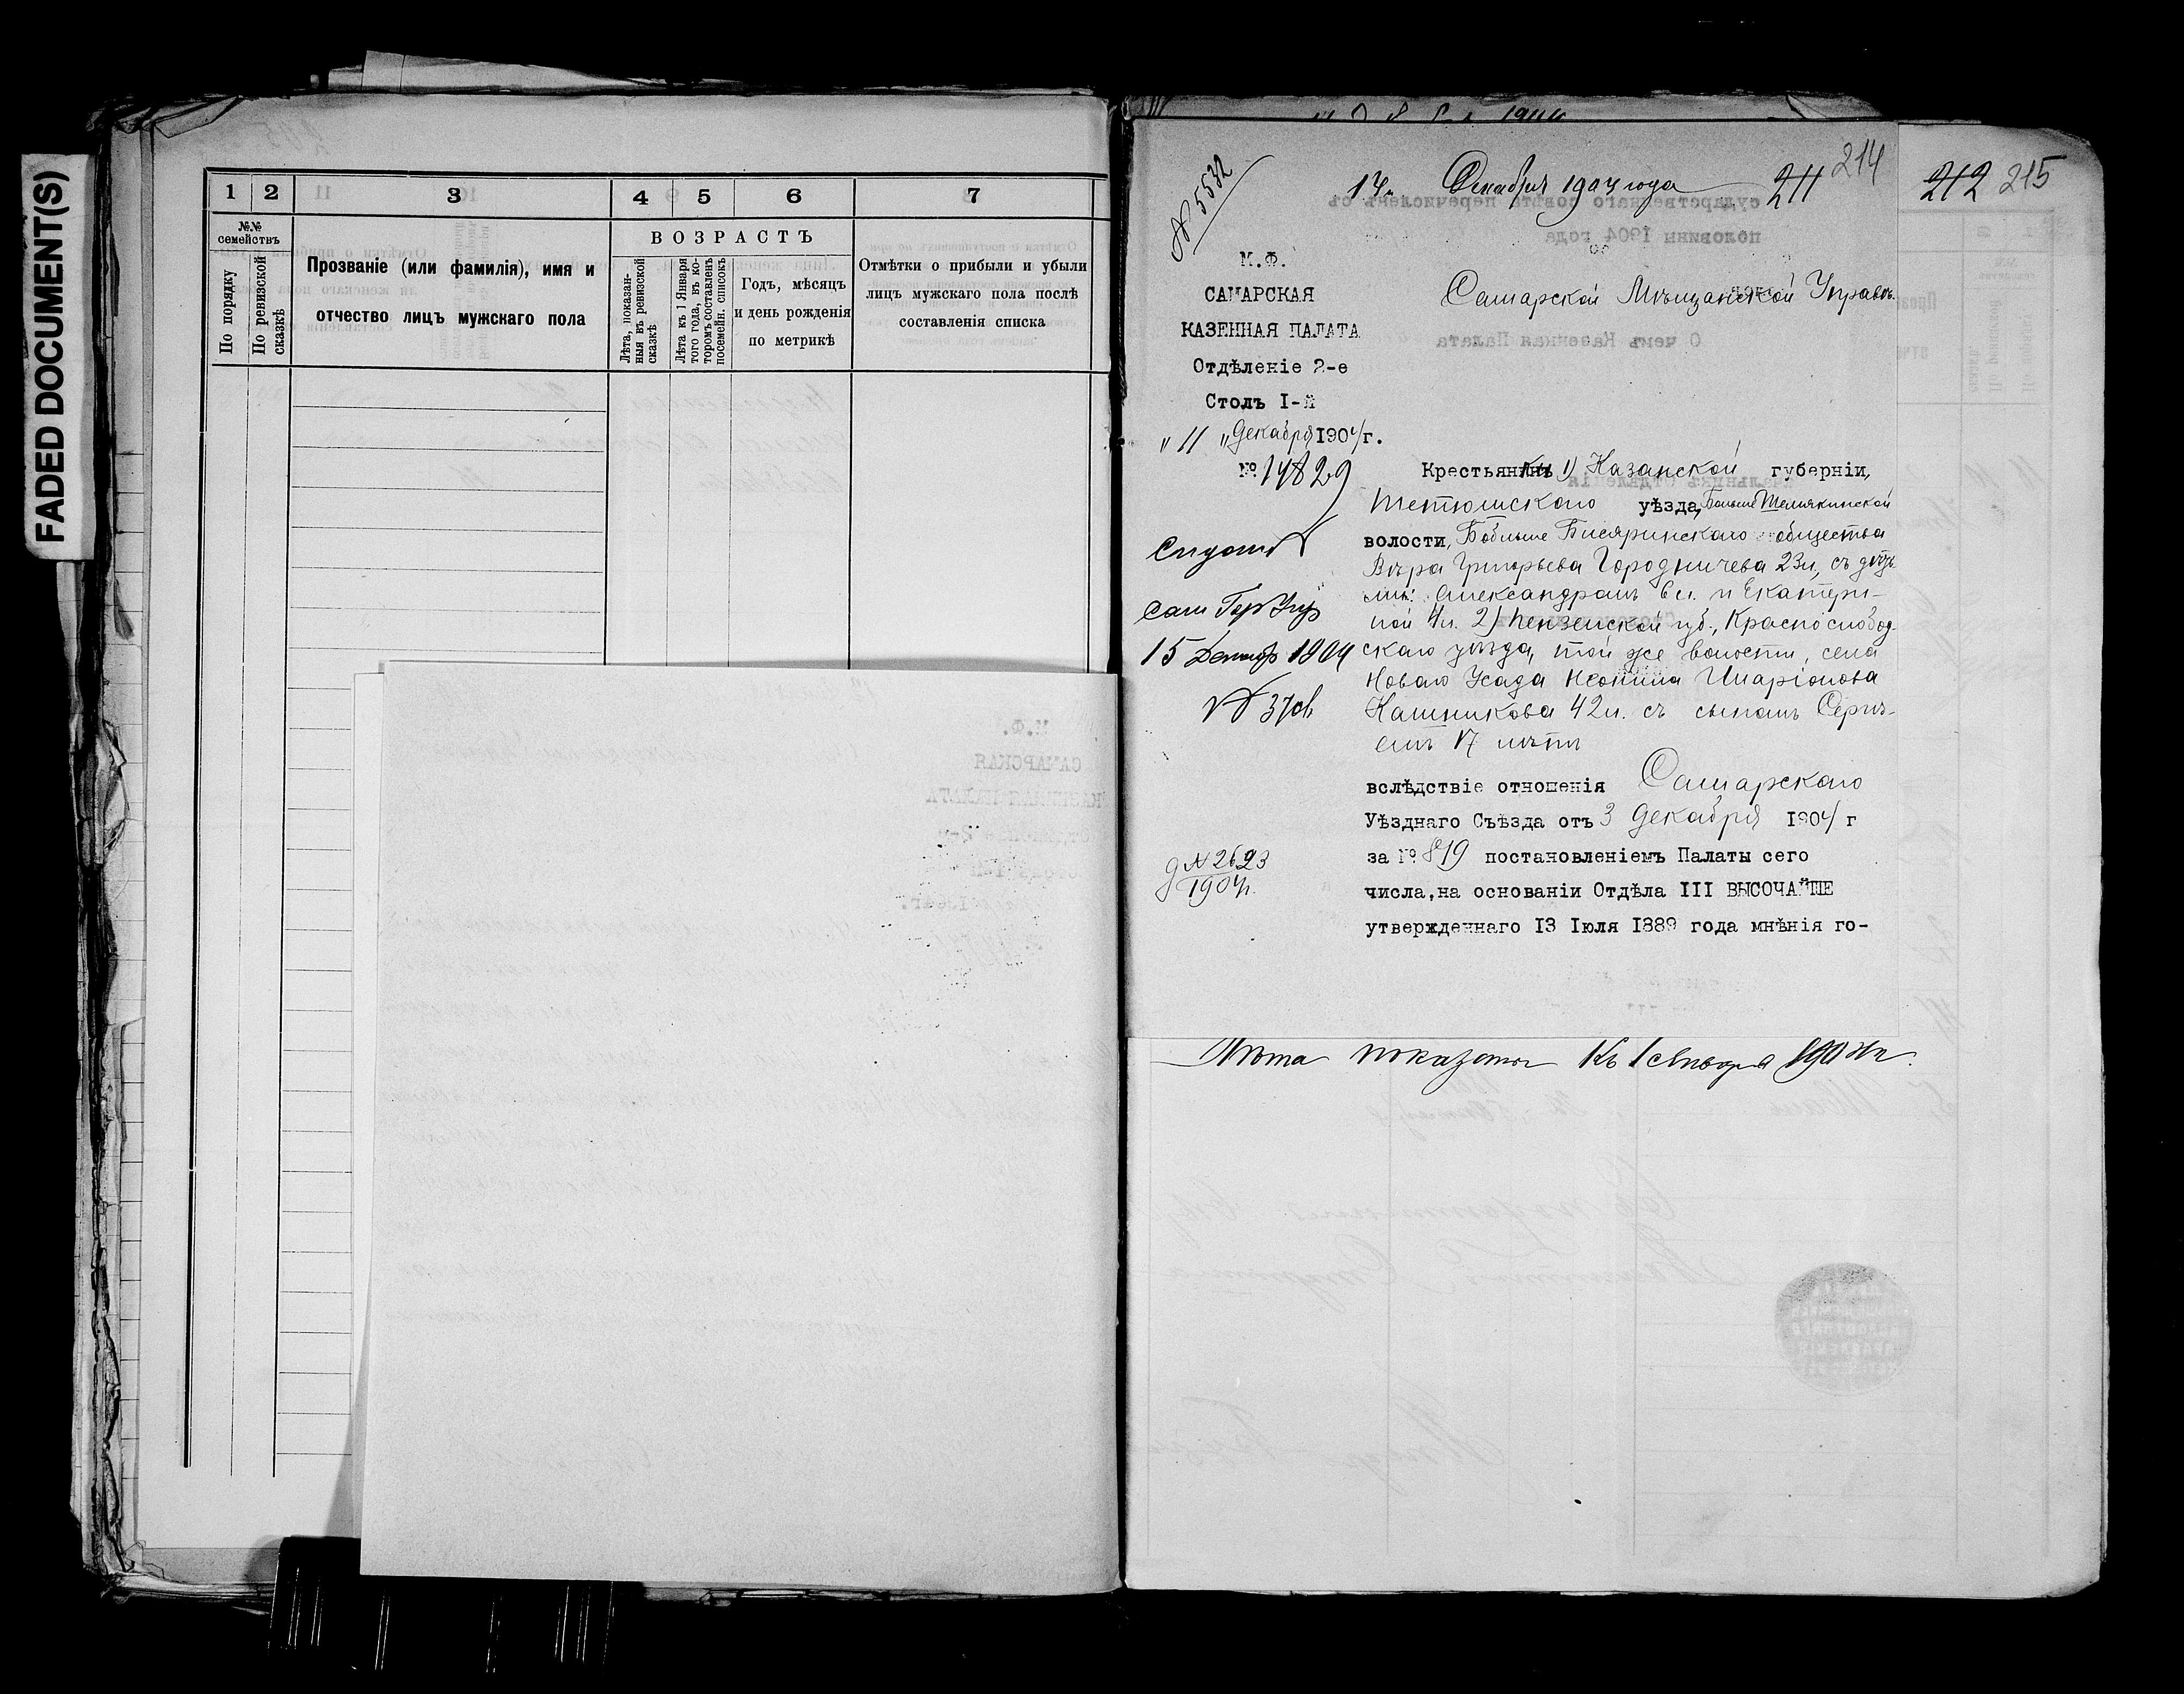 FADED DOCUMENT(S)
1 2 3 4 5 6 7
№№ семействъ
По порядку
По ревизской сказкѣ
Прозваніе (или фамилія), имя и
отчество лицъ мужскаго пола
ВОЗРАСТЪ
Лѣта, показан-
ныя въ ревизской
сказкѣ
Лѣта къ 1 Января
того года, въ ко-
торомъ составленъ
посемейн. списокъ
Годъ, мѣсяцъ
и день рожденія
по метрикѣ
Отмѣтки о прибыли и убыли
лицъ мужскаго пола послѣ
составленія списка
№ 5532
14 Декабря 1904 года
211 214
212 215
М.Ф.
САМАРСКАЯ
КАЗЕННАЯ ПАЛАТА
Отдѣленіе 2-е
Столъ I-й
"11" Декабря 1904 г.
№ 14829
Самарской Мѣщанской Управѣ.
Крестьянки 1) Казанской губерніи,
Тетюшскаго уѣзда, Больше Шемякинской
волости, Больше Бисяринскаго общества
Вѣра Григорьева Городничева 23 л., съ дѣть
ми: Александромъ 6 л. и Екатери-
ной 4 л. 2) Пензенской губ., Краснослобод-
скаго уѣзда, той же волости, села
Новаго Усада Неонила Иларіонова
Кашникова 42 л. съ сыномъ Сергѣ-
емъ 17 лѣтъ
вслѣдствіе отношенія Самарскаго
Уѣзднаго Съѣзда отъ 3 Декабря 1904 г
за № 819 постановленіемъ Палаты сего
числа, на основаніи Отдѣла III ВЫСОЧАЙШЕ
утвержденнаго 13 Іюля 1889 года мнѣнія го-
15 1904
д № 2623
1904 г.
Лѣта показаны къ 1 Января 1904 г.